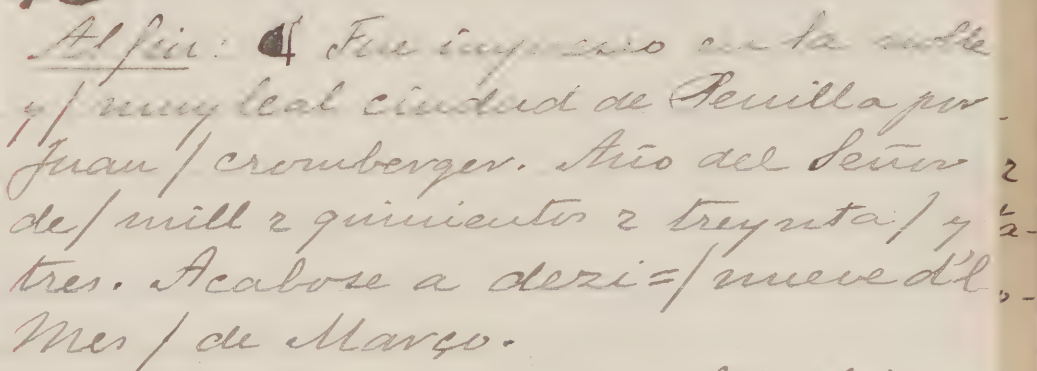 Al fin: ¶ Fue impresso en la noble
y / muy leal ciudad de Seuilla por
Juan / cromberger. Año del Señor
de / mill ⁊ quinientos ⁊ treynta / y
tres. Acabose a dezi=/ nueve d'l
Mes / de Março.